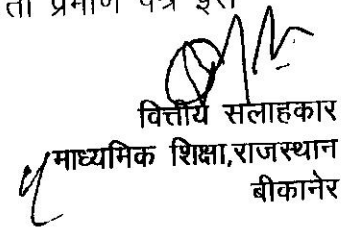 प्रमाण पत्र इस
वित्तीय सलाहकार
माध्यमिक शिक्षा,राजस्थान
बीकानेर